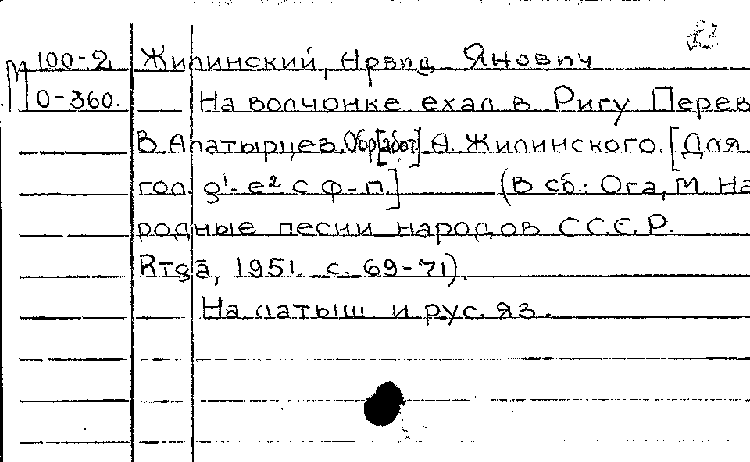 М 100-2 Жилинский, Арвид Янович
0-360. На волчонке ехал в Ригу Перев
В. Апатырцев. Обр[абот] А. Жилинского. [Для
гол. д¹-е² с ф-п.] (В сб: Ога, М. На
родные песни народов С.С.С.Р.
Rīgā, 1951. с. 69-71).
На латыш. и рус. яз.